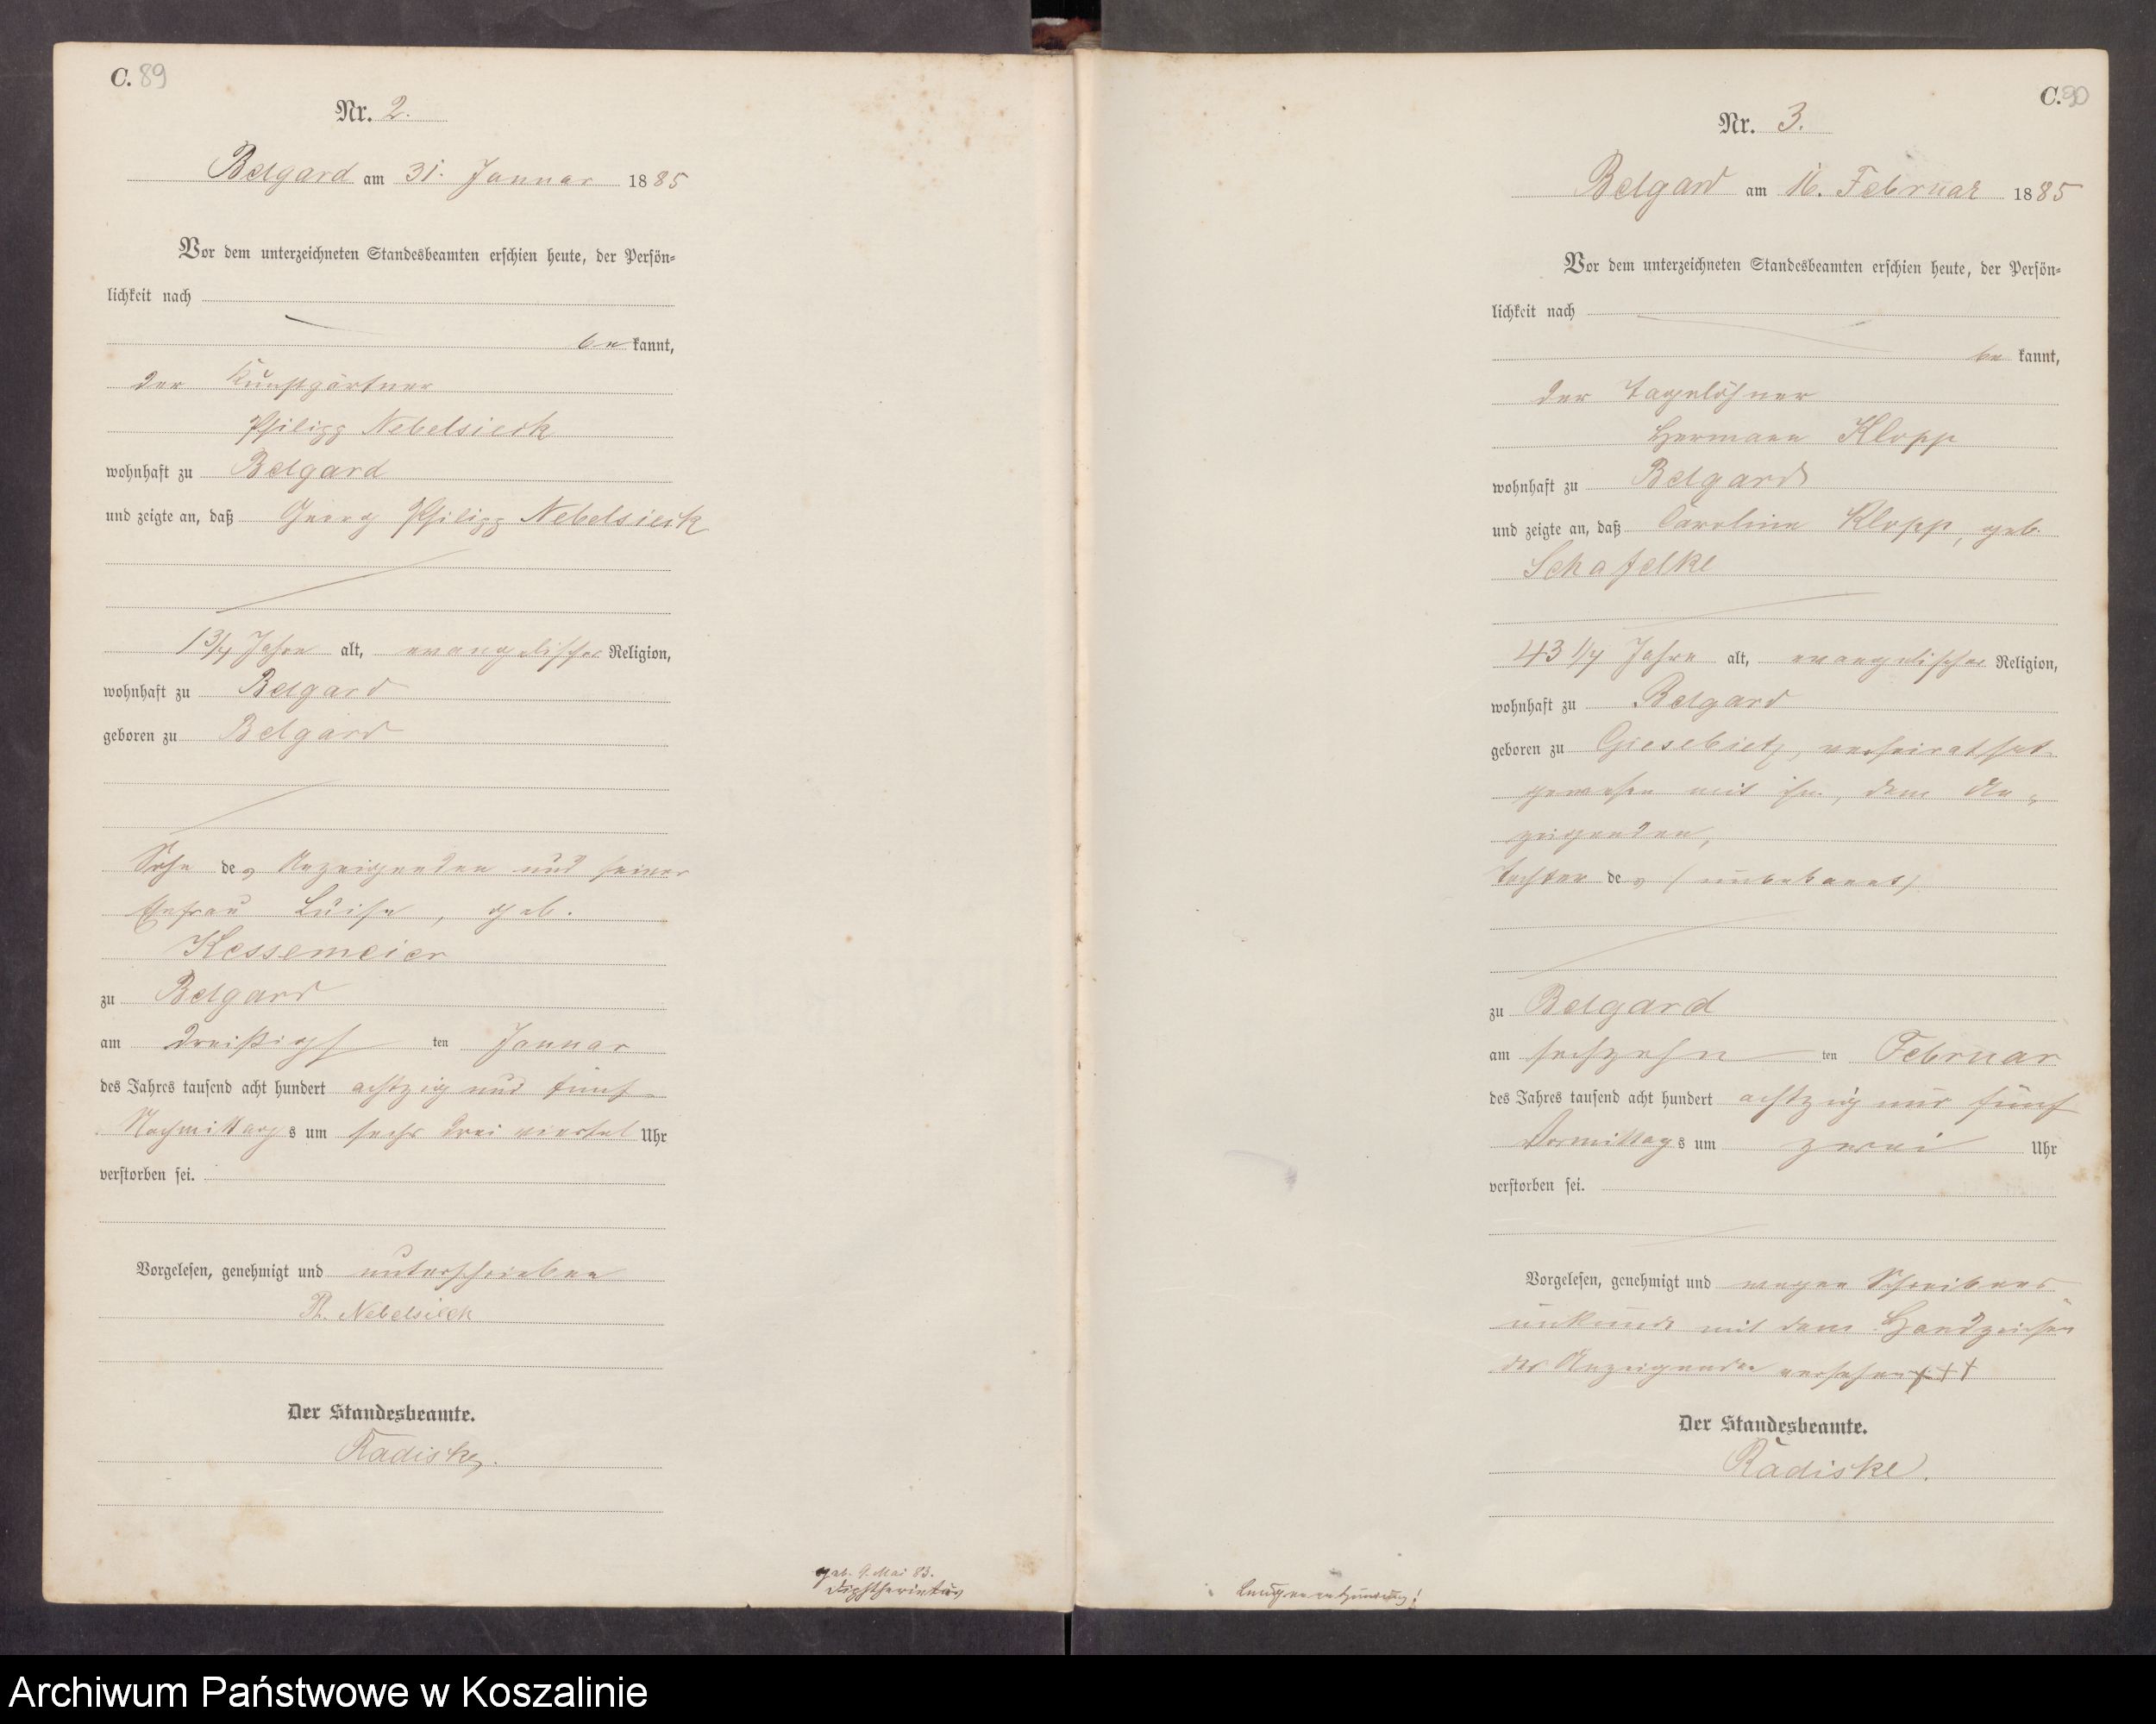 C. 89
Nr. 2.
Belgard am 31. Januar 1885
Vor dem unterzeichneten Standesbeamten erschien heute, der Persön-
lichkeit nach
be kannt,
der Kunstgärtner
Philipp Nebelsieck
wohnhaft zu Belgard
und zeigte an, daß Georg Philipp Nebelsieck
1 3/4 Jahre alt, evangelischer Religion,
wohnhaft zu Belgard
geboren zu Belgard
Sohn des Anzeigenden und seiner
Ehefrau Luise, geb.
Kessemeier
zu Belgard
am dreißigs ten Januar
des Jahres tausend acht hundert achtzig und fünf
Nachmittags um sechs drei viertel Uhr
verstorben sei.
Vorgelesen, genehmigt und unterschrieben
Ph. Nebelsieck
Der Standesbeamte.
Radiske.
geb. 9. Mai 83.
Diphtheritis
C. 90
Nr. 3.
Belgard am 16. Februar 1885
Vor dem unterzeichneten Standesbeamten erschien heute, der Persön-
lichkeit nach
be kannt,
der Tagelöhner
Hermann Klopp
wohnhaft zu Belgard
und zeigte an, daß Caroline Klopp, geb.
Schafelke
43 1/4 Jahre alt, evangelischer Religion,
wohnhaft zu Belgard
geboren zu Giesebietz, verheirathet
gewesen mit ihm, dem An-
zeigenden,
Tochter des (unbekannt)
zu Belgard
am sechzehn ten Februar
des Jahres tausend acht hundert achtzig und fünf
Vormittags um zwei Uhr
verstorben sei.
Vorgelesen, genehmigt und wegen Schreibens
unkunde mit dem Handzeichen
des Anzeigenden versehen +++
Der Standesbeamte.
Radiske.
Lungenentzündung!
Archiwum Państwowe w Koszalinie